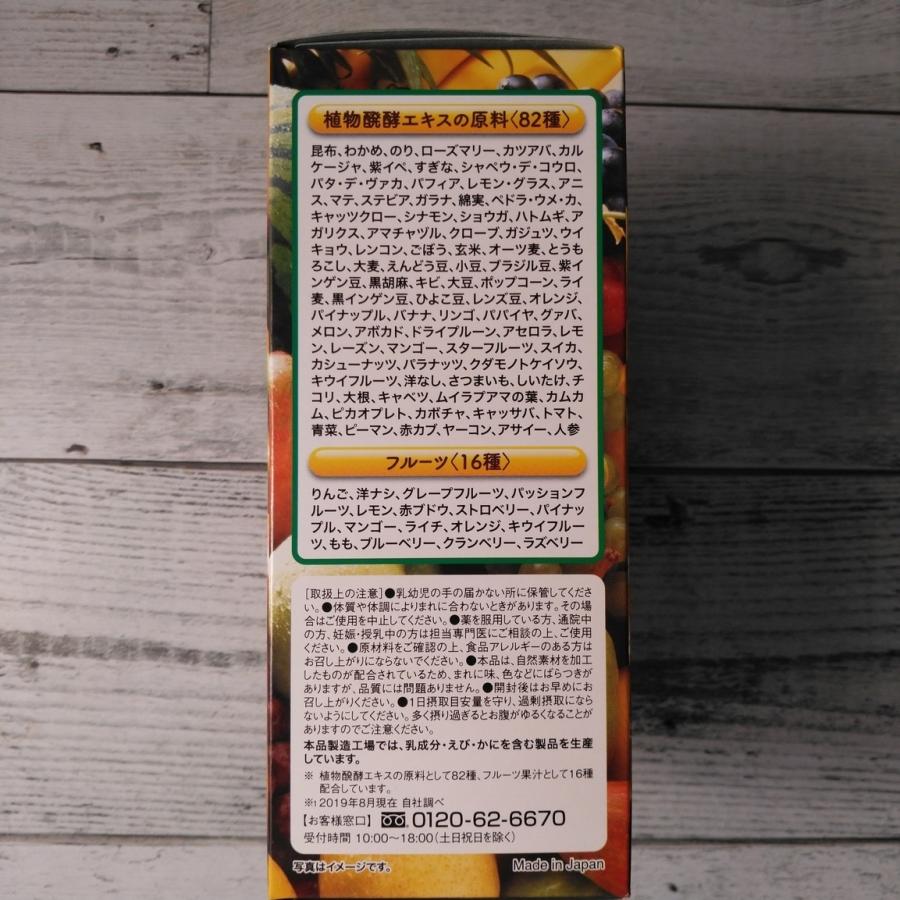 植物醗酵エキスの原料〈82種〉
昆布、わかめ、のり、ローズマリー、カツアバ、カル
ケージャ、紫イペ、すぎな、シャペウ・デ・コウロ、
パタ・デ・ヴァカ、パフィア、レモン・グラス、アニ
ス、マテ、ステビア、ガラナ、綿実、ペドラ・ウメ・カ、
キャッツクロー、シナモン、ショウガ、ハトムギ、ア
ガリクス、アマチャヅル、クローブ、ガジュツ、ウイ
キョウ、レンコン、ごぼう、玄米、オーツ麦、とうも
ろこし、大麦、えんどう豆、小豆、ブラジル豆、紫イ
ンゲン豆、黒胡麻、キビ、大豆、ポップコーン、ライ
麦、黒インゲン豆、ひよこ豆、レンズ豆、オレンジ、
パイナップル、バナナ、リンゴ、パパイヤ、グァバ、
メロン、アボカド、ドライプルーン、アセロラ、レモ
ン、レーズン、マンゴー、スターフルーツ、スイカ、
カシューナッツ、パラナッツ、クダモノトケイソウ、
キウイフルーツ、洋なし、さつまいも、しいたけ、チ
コリ、大根、キャベツ、ムイラプアマの葉、カムカ
ム、ピカオプレト、カボチャ、キャッサバ、トマト、
青菜、ピーマン、赤カブ、ヤーコン、アサイー、人参
フルーツ〈16種〉
りんご、洋ナシ、グレープフルーツ、パッションフ
ルーツ、レモン、赤ブドウ、ストロベリー、パイナッ
プル、マンゴー、ライチ、オレンジ、キウイフルー
ツ、もも、ブルーベリー、クランベリー、ラズベリー
［取扱上の注意］●乳幼児の手の届かない所に保管してくださ
い。●体質や体調によりまれに合わないときがあります。その場
合はご使用を中止してください。●薬を服用している方、通院中
の方、妊娠・授乳中の方は担当専門医にご相談の上、ご使用
ください。●原材料をご確認の上、食品アレルギーのある方は
お召し上がりにならないでください。●本品は、自然素材を加工
したものが配合されているため、まれに味、色などにばらつきが
ありますが、品質には問題ありません。●開封後はお早めにお
召し上がりください。●1日摂取目安量を守り、過剰摂取になら
ないようにしてください。多く摂り過ぎるとお腹がゆるくなることが
ありますのでご注意ください。
本品製造工場では、乳成分・えび・かにを含む製品を生産
しています。
※ 植物醗酵エキスの原料として82種、フルーツ果汁として16種
配合しています。
※1 2019年8月現在 自社調べ
【お客様窓口】 0120-62-6670
受付時間 10:00〜18:00（土日祝日を除く）
写真はイメージです。 Made in Japan